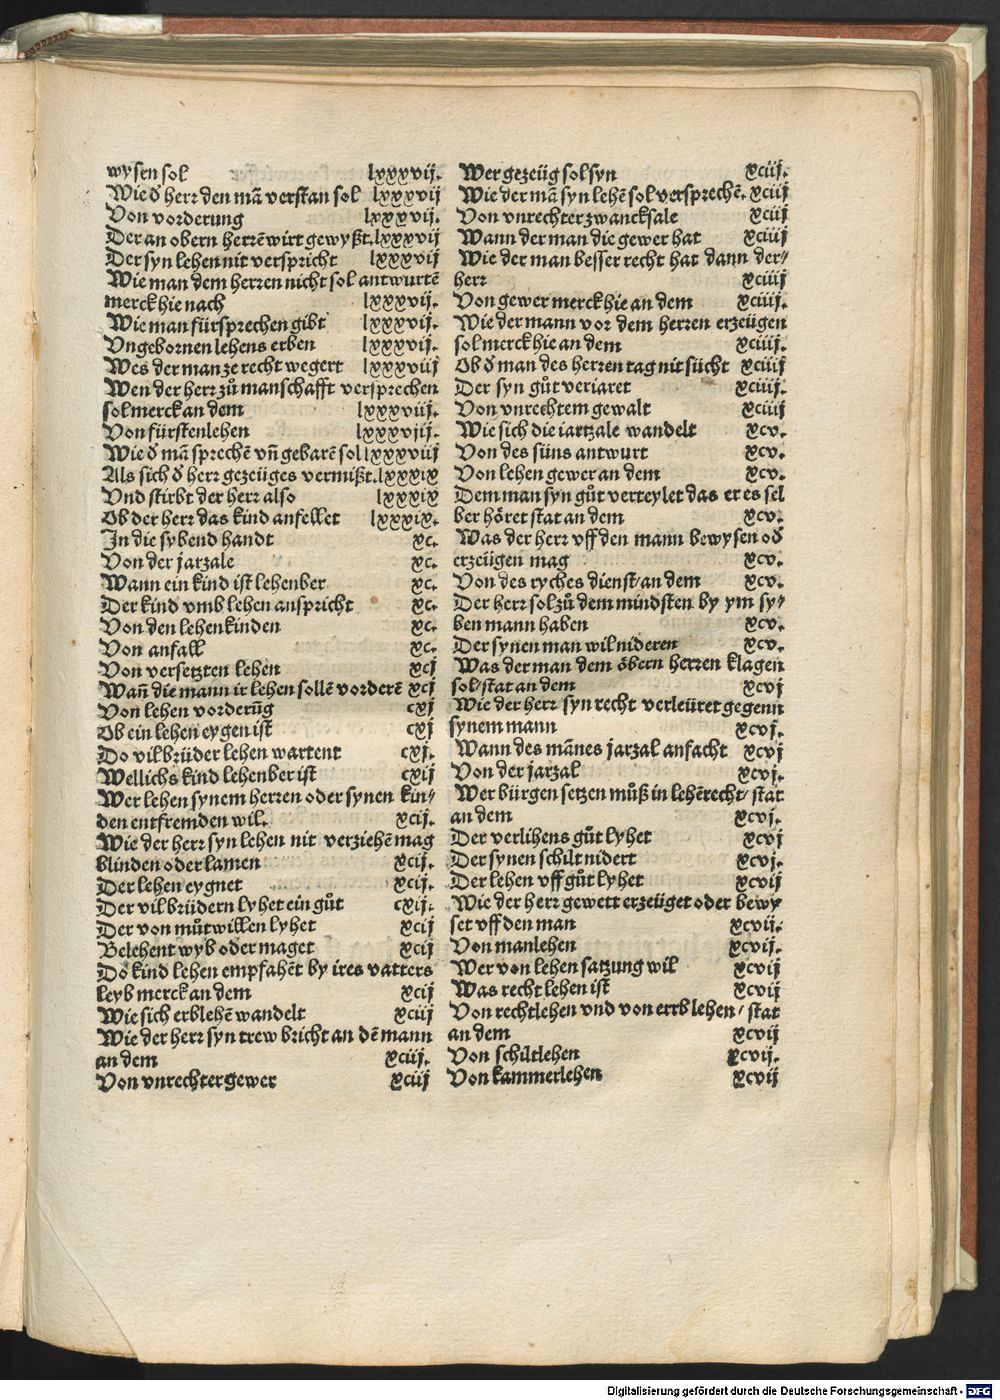 wysen sol lxxxvij.
Wie d̄ herr den mā verstan sol lxxxvij
Von vorderung lxxxvij.
Der an obern herrē wirt gewyßt. lxxxvij
Der syn lehen nit verspricht lxxxvij
Wie man dem herren nicht sol antwurtē
merck hie nach lxxxvij.
Wie man fürsprechen gibt lxxxvij.
Vngebornen lehens erben lxxxvij.
Wes der man ze recht wegert lxxxviij
Wen der herr zů manschafft versprechen
sol merck an dem lxxxviij.
Von fürstenlehen lxxxvjij.
Wie d̄ mā sprechē vn̄ gebarē sol lxxxviij
Als sich d̄ herr gezeüges vermißt. lxxxix
Vnd stirbt der herr also lxxxix
Ob der herr das kind anfellet lxxxix.
In die sybend handt xc.
Von der jarzale xc.
Wann ein kind ist lehenber xc.
Der kind vmb lehen anspricht xc.
Von den lehenkinden xc.
Von anfall xc.
Von versetzten lehen xcj
Wan̄ die mann ir lehen sollē vorderē xcj
Von lehen vorderūg cxj
Ob ein lehen eygen ist cxj
Do vil brüder lehen wartent cxj.
Wellichs kind lehenber ist cxij
Wer lehen synem herren oder synen kin⸗
den entfremden wil. xcij.
Wie der herr syn lehen nit verziehē mag
blinden oder lamen xcij.
Der lehen eygnet xcij.
Der vil brüdern lyhet ein gůt cxij.
Der von můtwillen lyhet xcij
Belehent wyb oder maget xcij
Do kind lehen empfahēt by ires vatters
leyb merck an dem xcij
Wie sich erblehē wandelt xciij
Wie der herr syn trew bricht an dē mann
an dem xciij.
Von vnrechter gewer xciij
Wer gezeüg sol syn xciij.
Wie der mā syn lehē sol versprechē. xciij
Von vnrechter zwancksale xciij
Wann der man die gewer hat xciiij
Wie der man besser recht hat dann der⸗
herr xciiij
Von gewer merck hie an dem xciiij.
Wie der mann vor dem herren erzeügen
sol merck hie an dem xciiij.
Ob d̄ man des herren tag nit sücht xciiij
Der syn gůt veriaret xciiij.
Von vnrechtem gewalt xciiij
Wie sich die iartzale wandelt xcv.
Von des süns antwurt xcv.
Von lehen gewer an dem xcv.
Dem man syn gůt verteylet das er es sel
ber höret stat an dem xcv.
Was der herr vff den mann bewysen od̄
erzeügen mag xcv.
Von des ryches dienst/ an dem xcv.
Der herr sol zů dem mindsten by ym sy⸗
ben mann haben xcv.
Der synen man wil nideren xcv.
Was der man dem öbern herren klagen
sol/ stat an dem xcvj
Wie der herr syn recht verleüret gegenn
synem mann xcvj.
Wann des mānes jarzal anfacht xcvj
Von der jarzal xcvj.
Wer bürgen setzen můß in lehērecht/ stat
an dem xcvj.
Der verlihens gůt lyhet xcvj
Der synen schilt nidert xcvj.
Der lehen vff gůt lyhet xcvij
Wie der herr gewett erzeüget oder bewy
set vff den man xcvij.
Von manlehen xcvij.
Wer von lehen satzung wil xcvij
Was recht lehen ist xcvij
Von rechtlehen vnd von errb lehen/ stat
an dem xcvij
Von schiltlehen xcvij.
Von kammerlehen xcvij
Digitalisierung gefördert durch die Deutsche Forschungsgemeinschaft - DFG